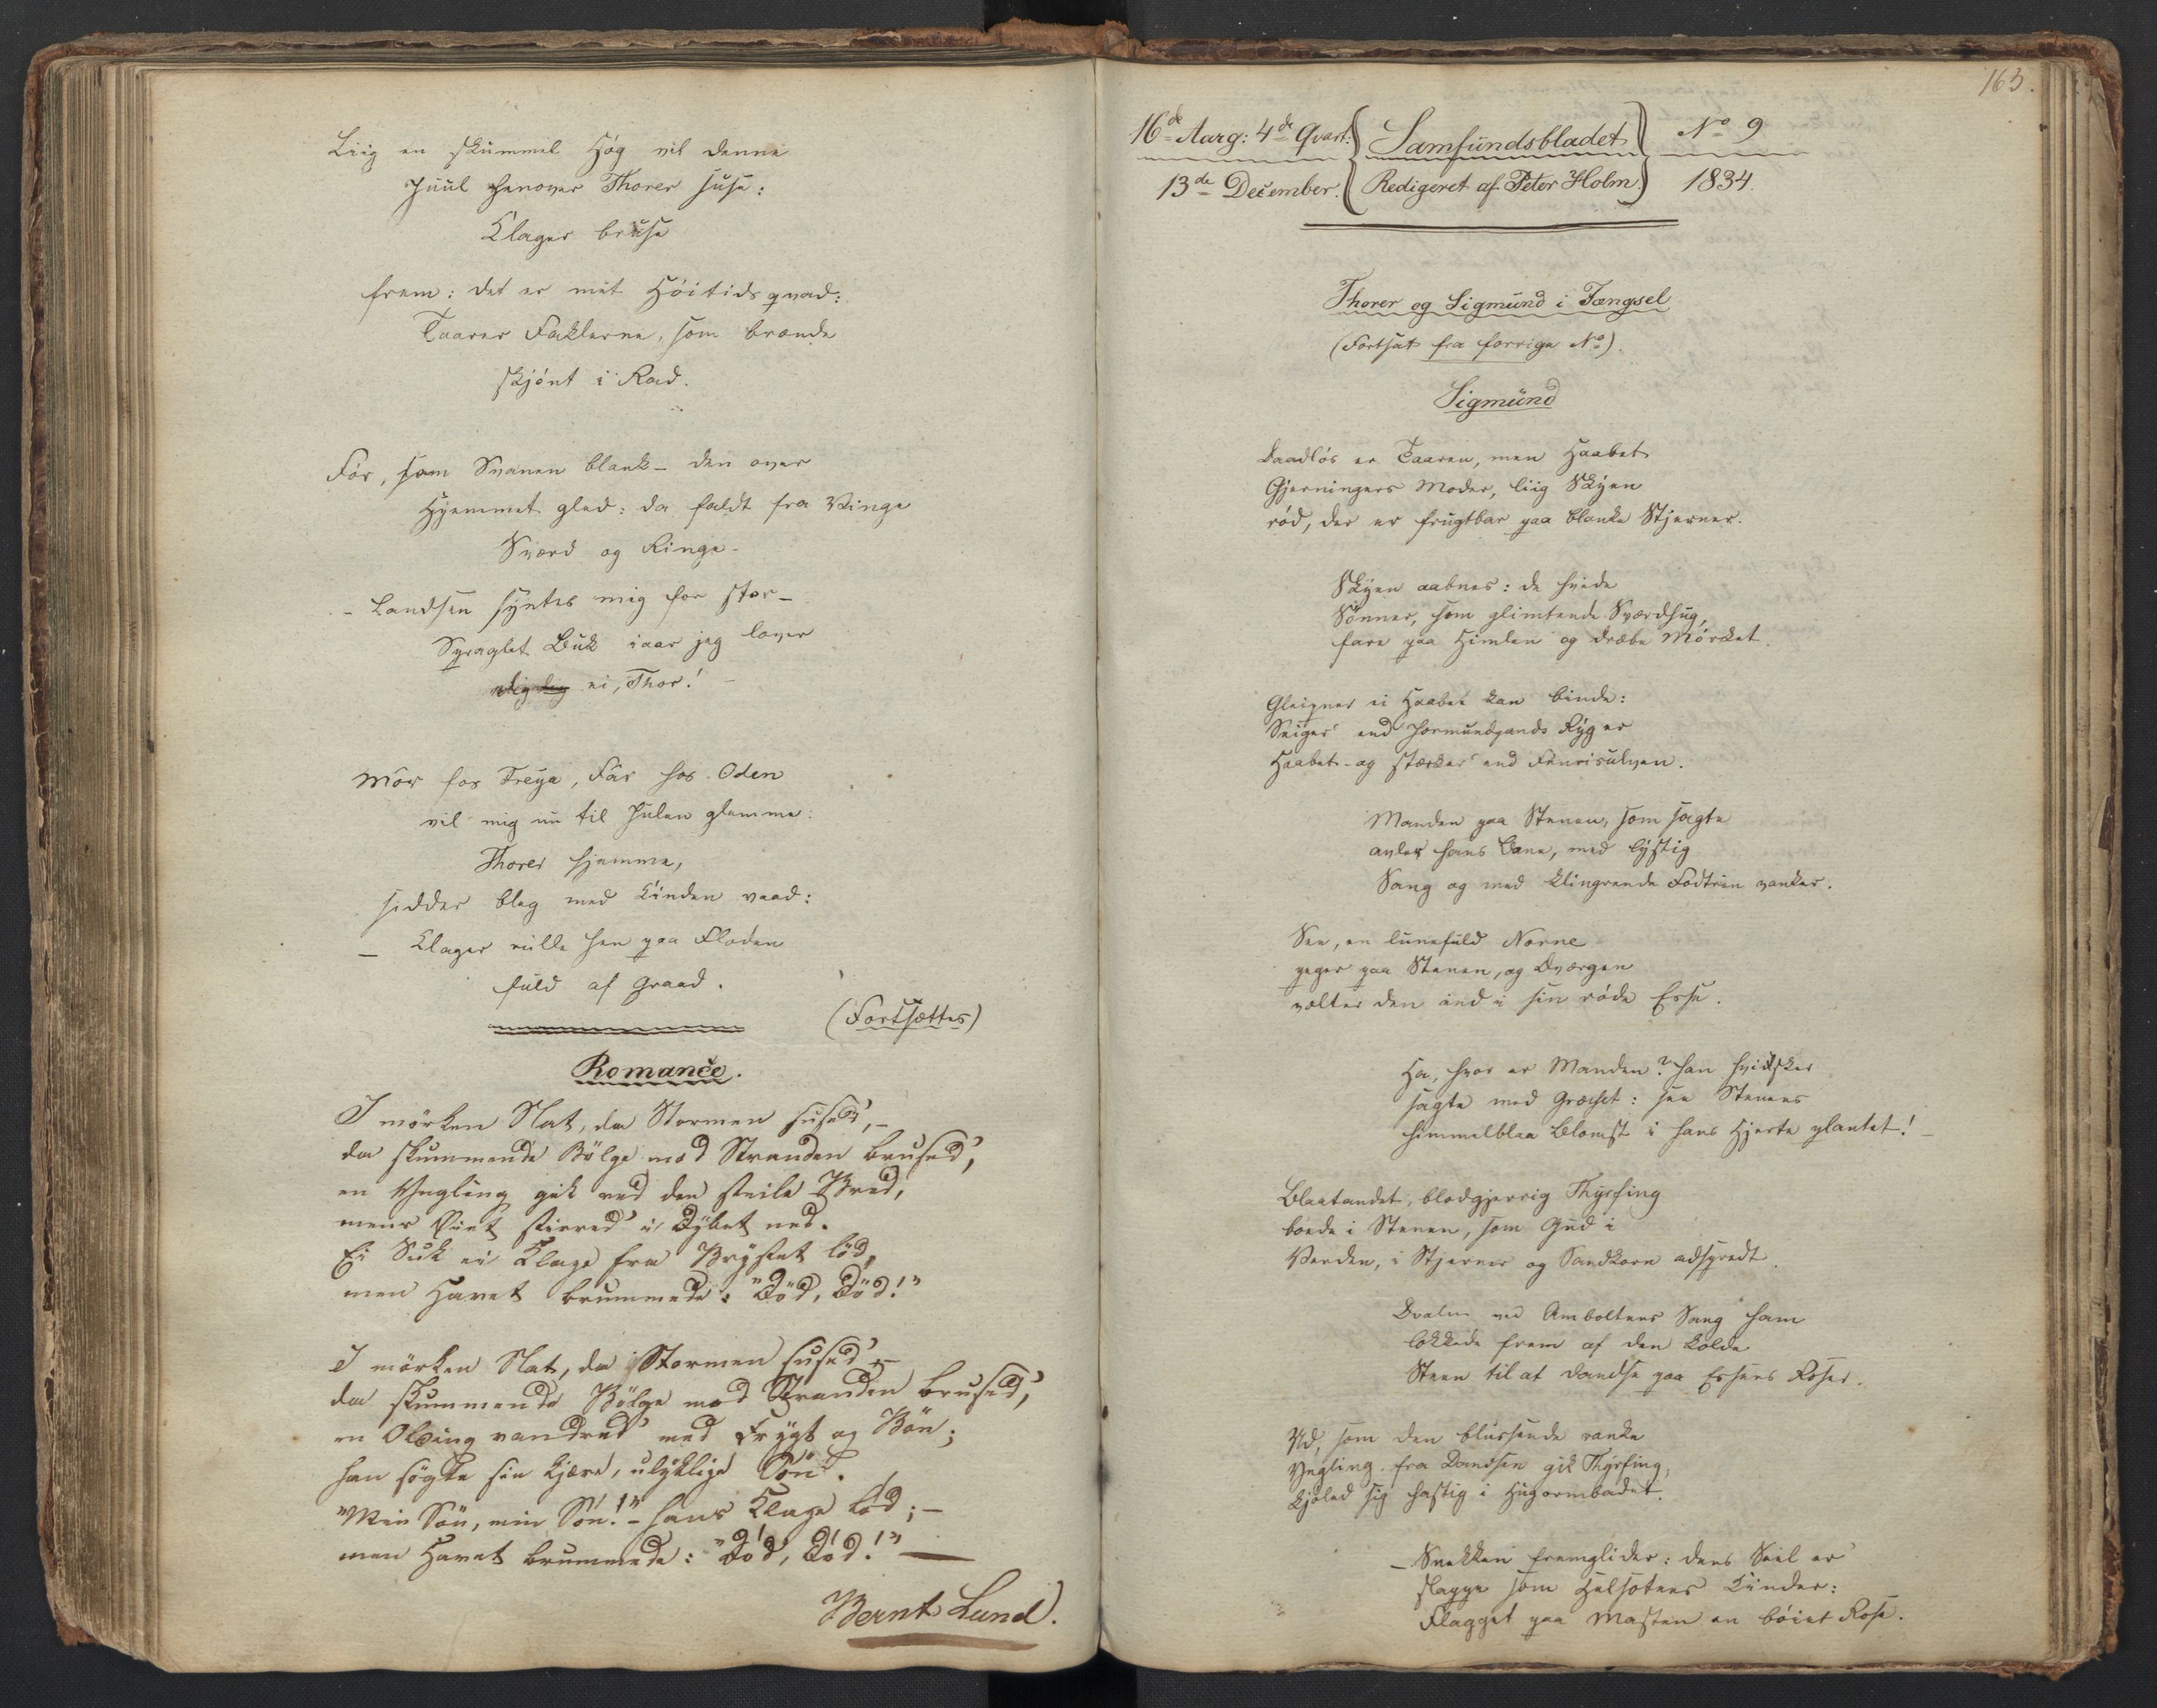 Liig en skummel Høg vil denne
Juul henover Thorer suse:
Klager bruse
frem: det er mit Höitidsqvad:
Taarer Faklerne, som brænde
skjönt i Rad.
För, som Svanen blank – den over
Hjemmet gled: da faldt fra Vinge
Sværd og Ringe.
– Landsen syntes mig for stor –
Spraglet Buk iaar jeg lover
ei, Thor! –
Mör hos Freya, Fár hos Oden
vil mig nu til Julen glemme:
Thorer hjemme,
sidder bleg med Kinden vaad:
– Klager rulle hen paa Floden
fuld af Graad.
(Fortsættes)
Romance.
I mörken Nat, da Stormen sused', –
da skummende Bölge mod Stranden brused',
en Yngling gik ved den steile Bred,
mens Öiet stirred' i Dybet ned.
Ei Suk ei Klage fra Brystet löd,
men Havet brummede: "Död, Död!"
I mörken Nat, da Stormen sused' –
da skummende Bölge mod Stranden brused',
en Olding vandred' med Frygt og Bön;
han sögte sin kjære, ulyklige Sön.
"Min Sön, min Sön!" – hans Klage löd; –
men Havet brummede: "Död, Död!" —
Bernt Lund.
163.
16de Aarg: 4de Qvart: Samfundsbladet No 9
13de December. Redigeret af Peter Holm. 1834.
Thorer og Sigmund i Fængsel
(Fortsat fra forrige No).
Sigmund
Daadlös er Taaren, men Haabet
Gjerningers Moder, liig Skyen
röd, der er frugtbar paa blanke Stjerner.
Skyen aabnes: de hvide
Sönner, som glimtende Sværdhug,
fare paa Himlen og dræbe Mörket.
Gleipner ei Haabet kan binde:
Seiger' end Jormundgands Ryg er
Haabet – og stærker' end Fenrisulven.
Manden paa Stenen, som sagte
avler hans Bane, med lystig
Sang og med klingrende Fodtrin vanker.
See, en lunefuld Norne
peger paa Stenen, og Dværgen
vælter den ind i sin röde Esse.
Ha, hvor er Manden? han hvidsker
sagte med Græsset: see Stenens
himmelblaa Blomst i hans Hjerte plantet! –
Blaatandet, blodgjerrig Thyrfing
boede i Stenen, som Gud i
Verden, i Stjerner og Sandkorn adspredt.
Dvalin ved Amboltens Sang ham
lokkede frem af den kolde
Steen til at dandse paa Essens Roser.
Ud, som den blussende ranke
Yngling fra Dandsen gik Thyrfing,
kjöled sig hastig i Hugormbadet.
– Snekken fremglider: dens Seil er
slappe som Helsotens Kinder:
Flagget paa Masten en böiet Rose.